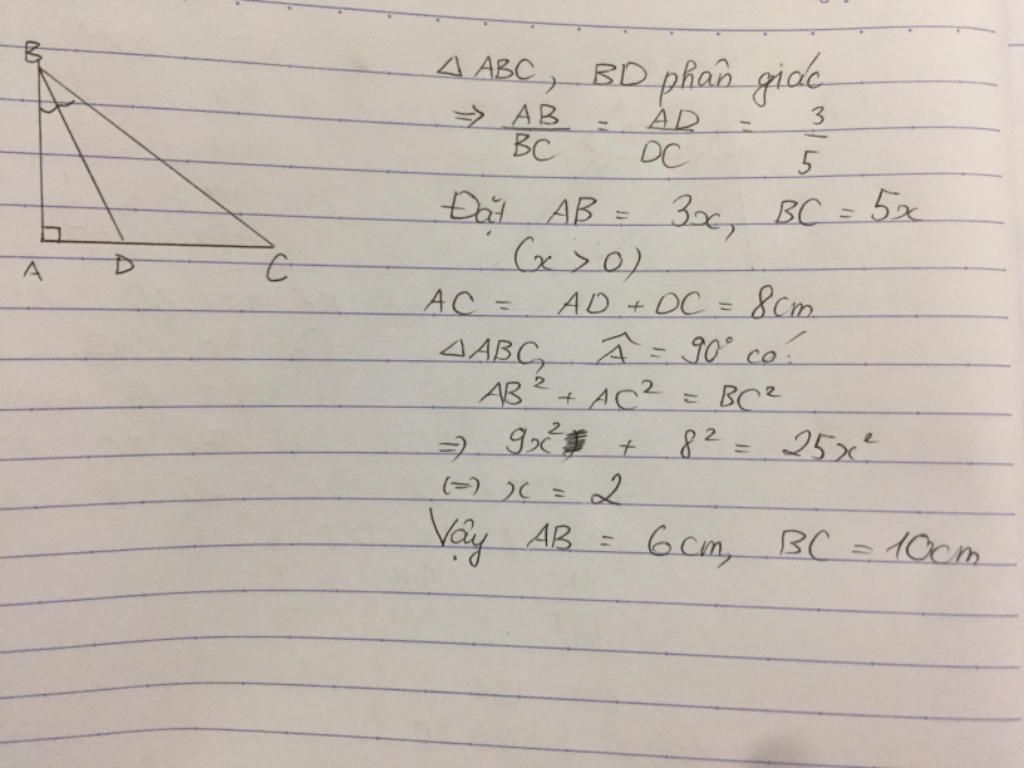 B
A D C
△ABC, BD phân giác
⇒ AB/BC = AD/DC = 3/5
Đặt AB = 3x, BC = 5x
(x > 0)
AC = AD + DC = 8cm
△ABC, Â = 90° có:
AB² + AC² = BC²
⇒ 9x² + 8² = 25x²
(=) x = 2
Vậy AB = 6cm, BC = 10cm